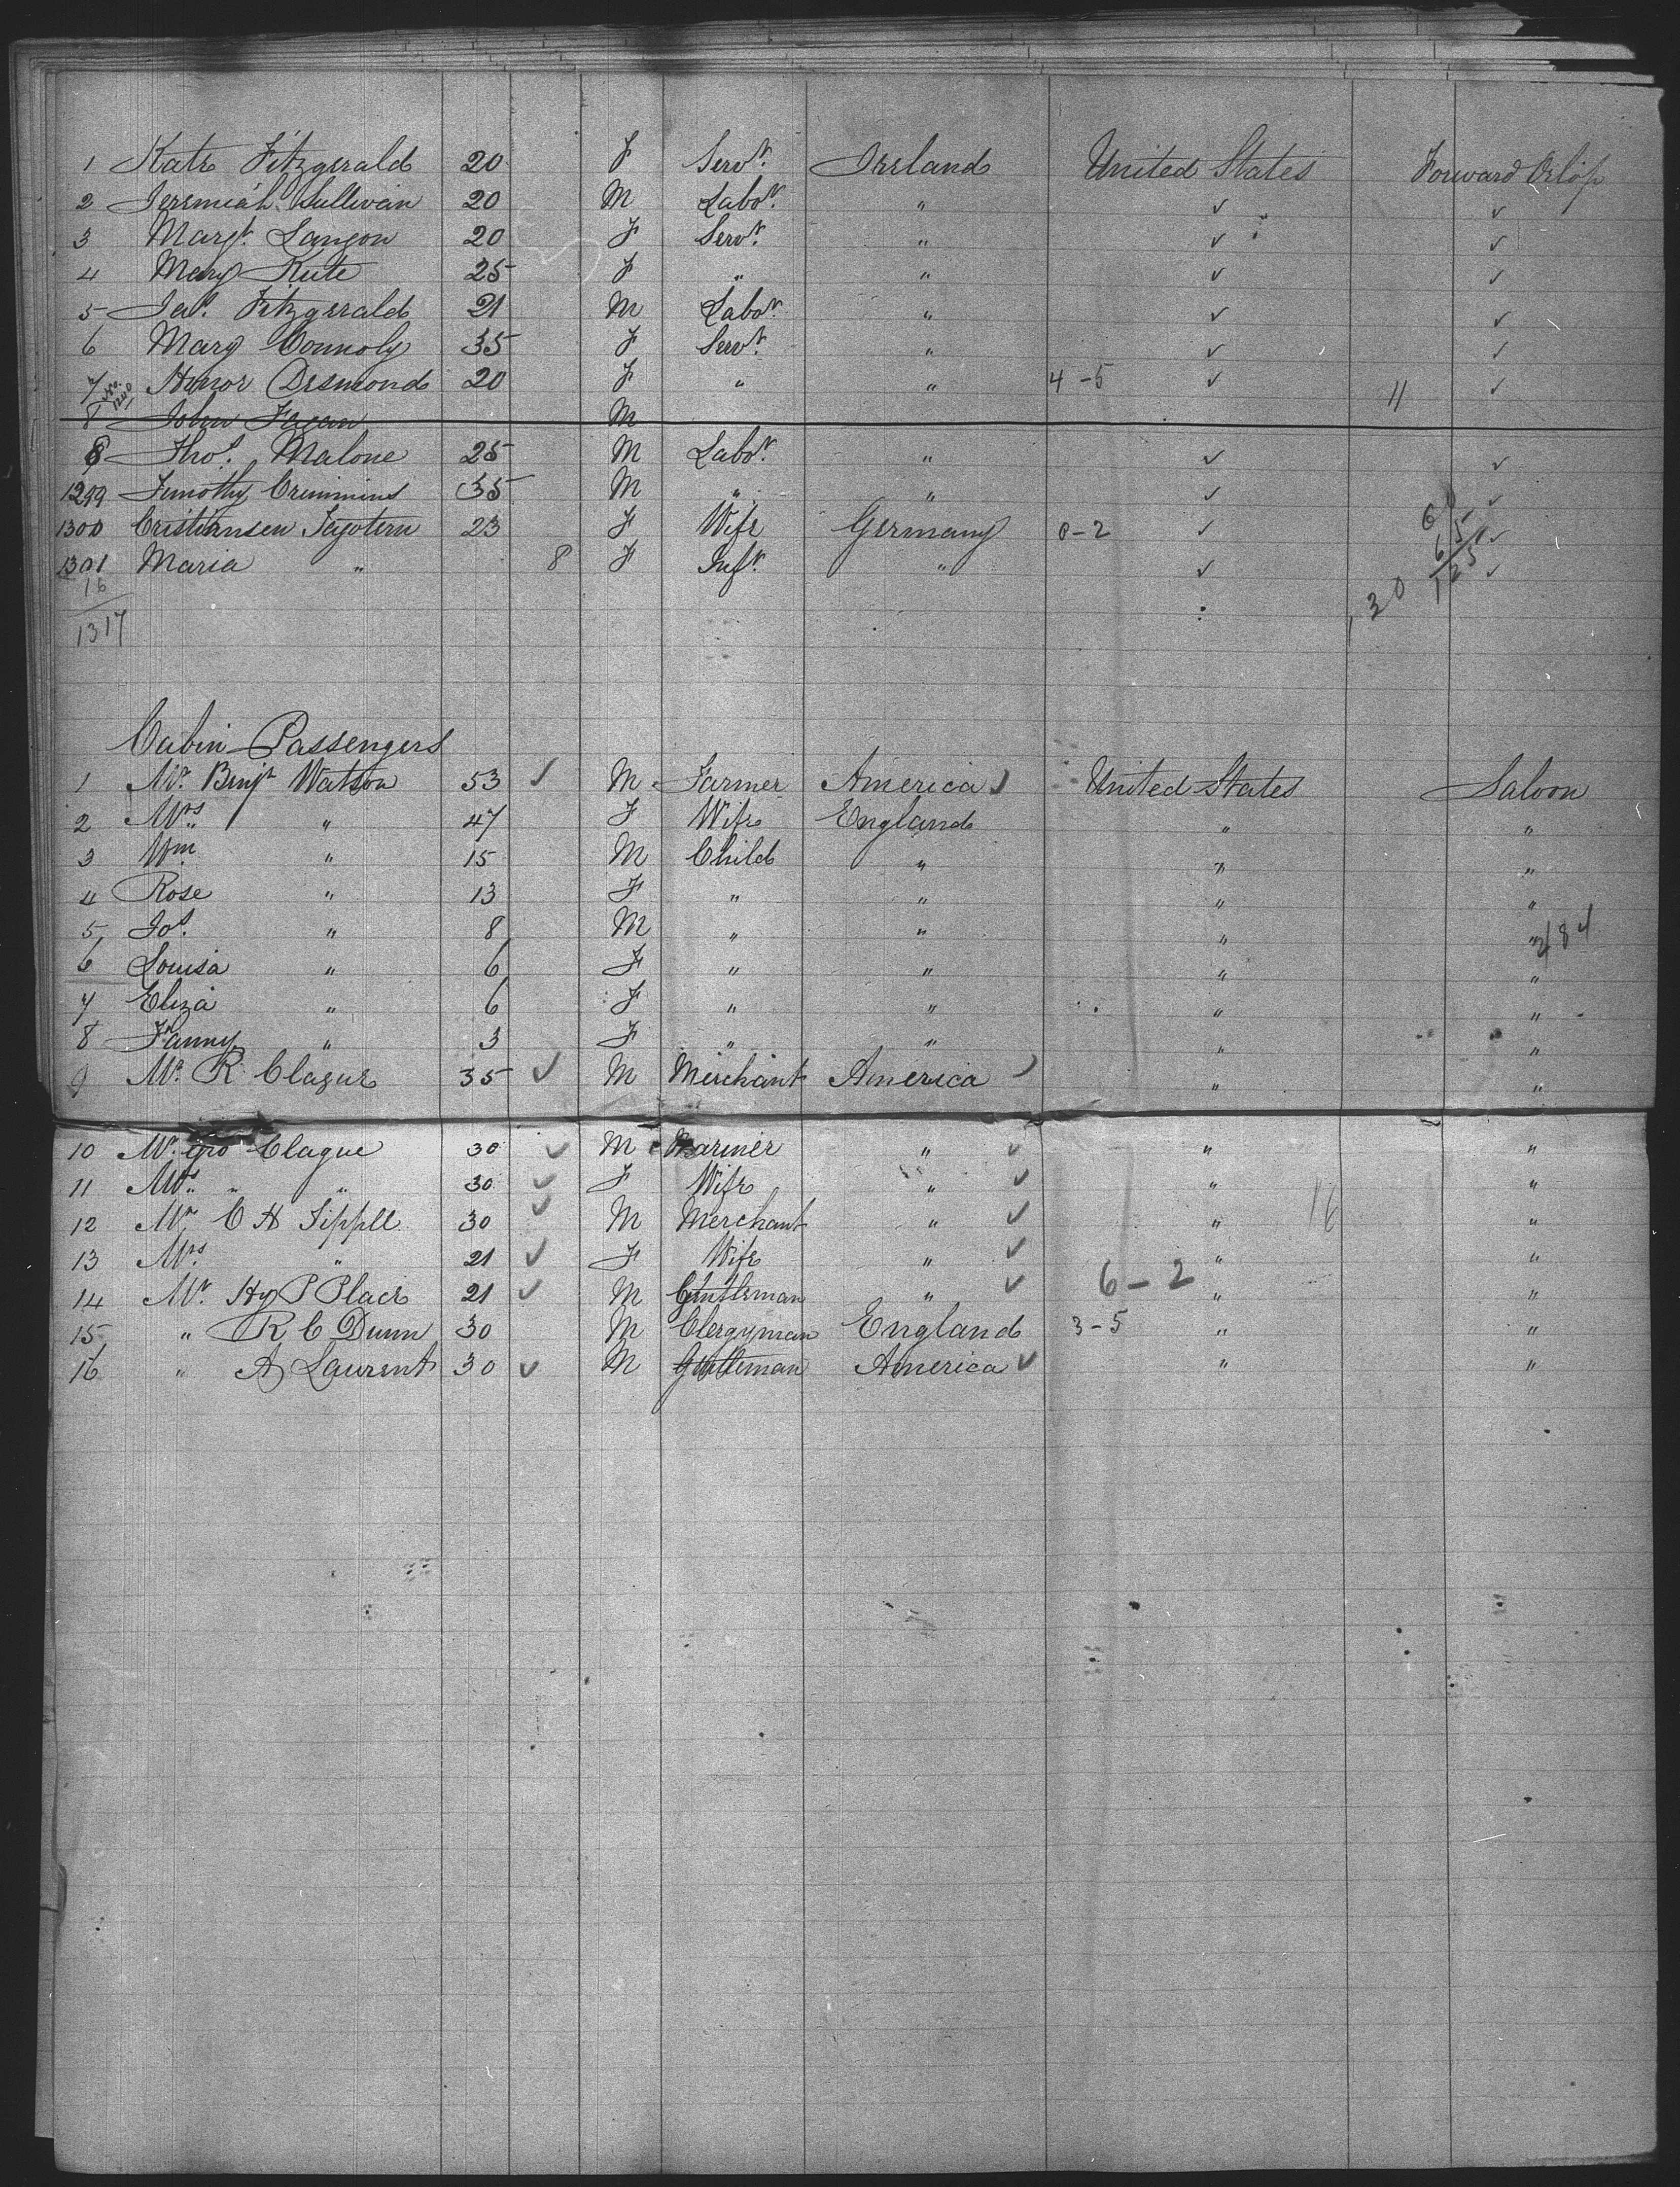 1 Kate Fitzgerald 20 F Servt. Ireland United States Forward Orlop
2 Jeremiah Sullivan 20 M Labor. " ✓ ✓
3 Margt. Langon 20 F Servt. " ✓ ✓
4 Mary Kute 25 F " " ✓ ✓
5 Jas. Fitzgerald 21 M Labor. " ✓ ✓
6 Mary Connoly 35 F Servt. " ✓ ✓
7 Honor Desmond 20 F " " 4-5 ✓ 11 ✓
8 John Fagan M
8 Thos. Malone 25 M Labor. " ✓ ✓
1299 Timothy Crimmins 35 M " " ✓ ✓
1300 Cristiansen 23 F Wife Germany 0-2 ✓ ✓
1301 Maria " 8 F Inft. " ✓ ✓
16
1317
6
65
125
130
Cabin Passengers
1 Mr. Benjn Watson 53 ✓ M Farmer America ✓ United States Saloon
2 Mrs " 47 F Wife England " "
3 Wm " 15 M Child " " "
4 Rose " 13 F " " " "
5 Jos. " 8 M " " " " 184
6 Louisa " 6 F " " " "
7 Eliza " 6 F " " " "
8 Fanny " 3 F " " " "
9 Mr. R Clague 35 ✓ M Merchant America ✓ " "
10 Mr. Geo Clague 30 ✓ M Mariner " ✓ " "
11 Mrs. " " 30 ✓ F Wife " ✓ " 16 "
12 Mr C H Tippll 30 ✓ M Merchant " ✓ " "
13 Mrs " 21 ✓ F Wife " ✓ " "
14 Mr. Hy P Place 21 ✓ M Gentleman " ✓ 6-2 " "
15 " R C Dunn 30 M Clergyman England 3-5 " "
16 " A Laurent 30 ✓ M Gentleman America ✓ " "